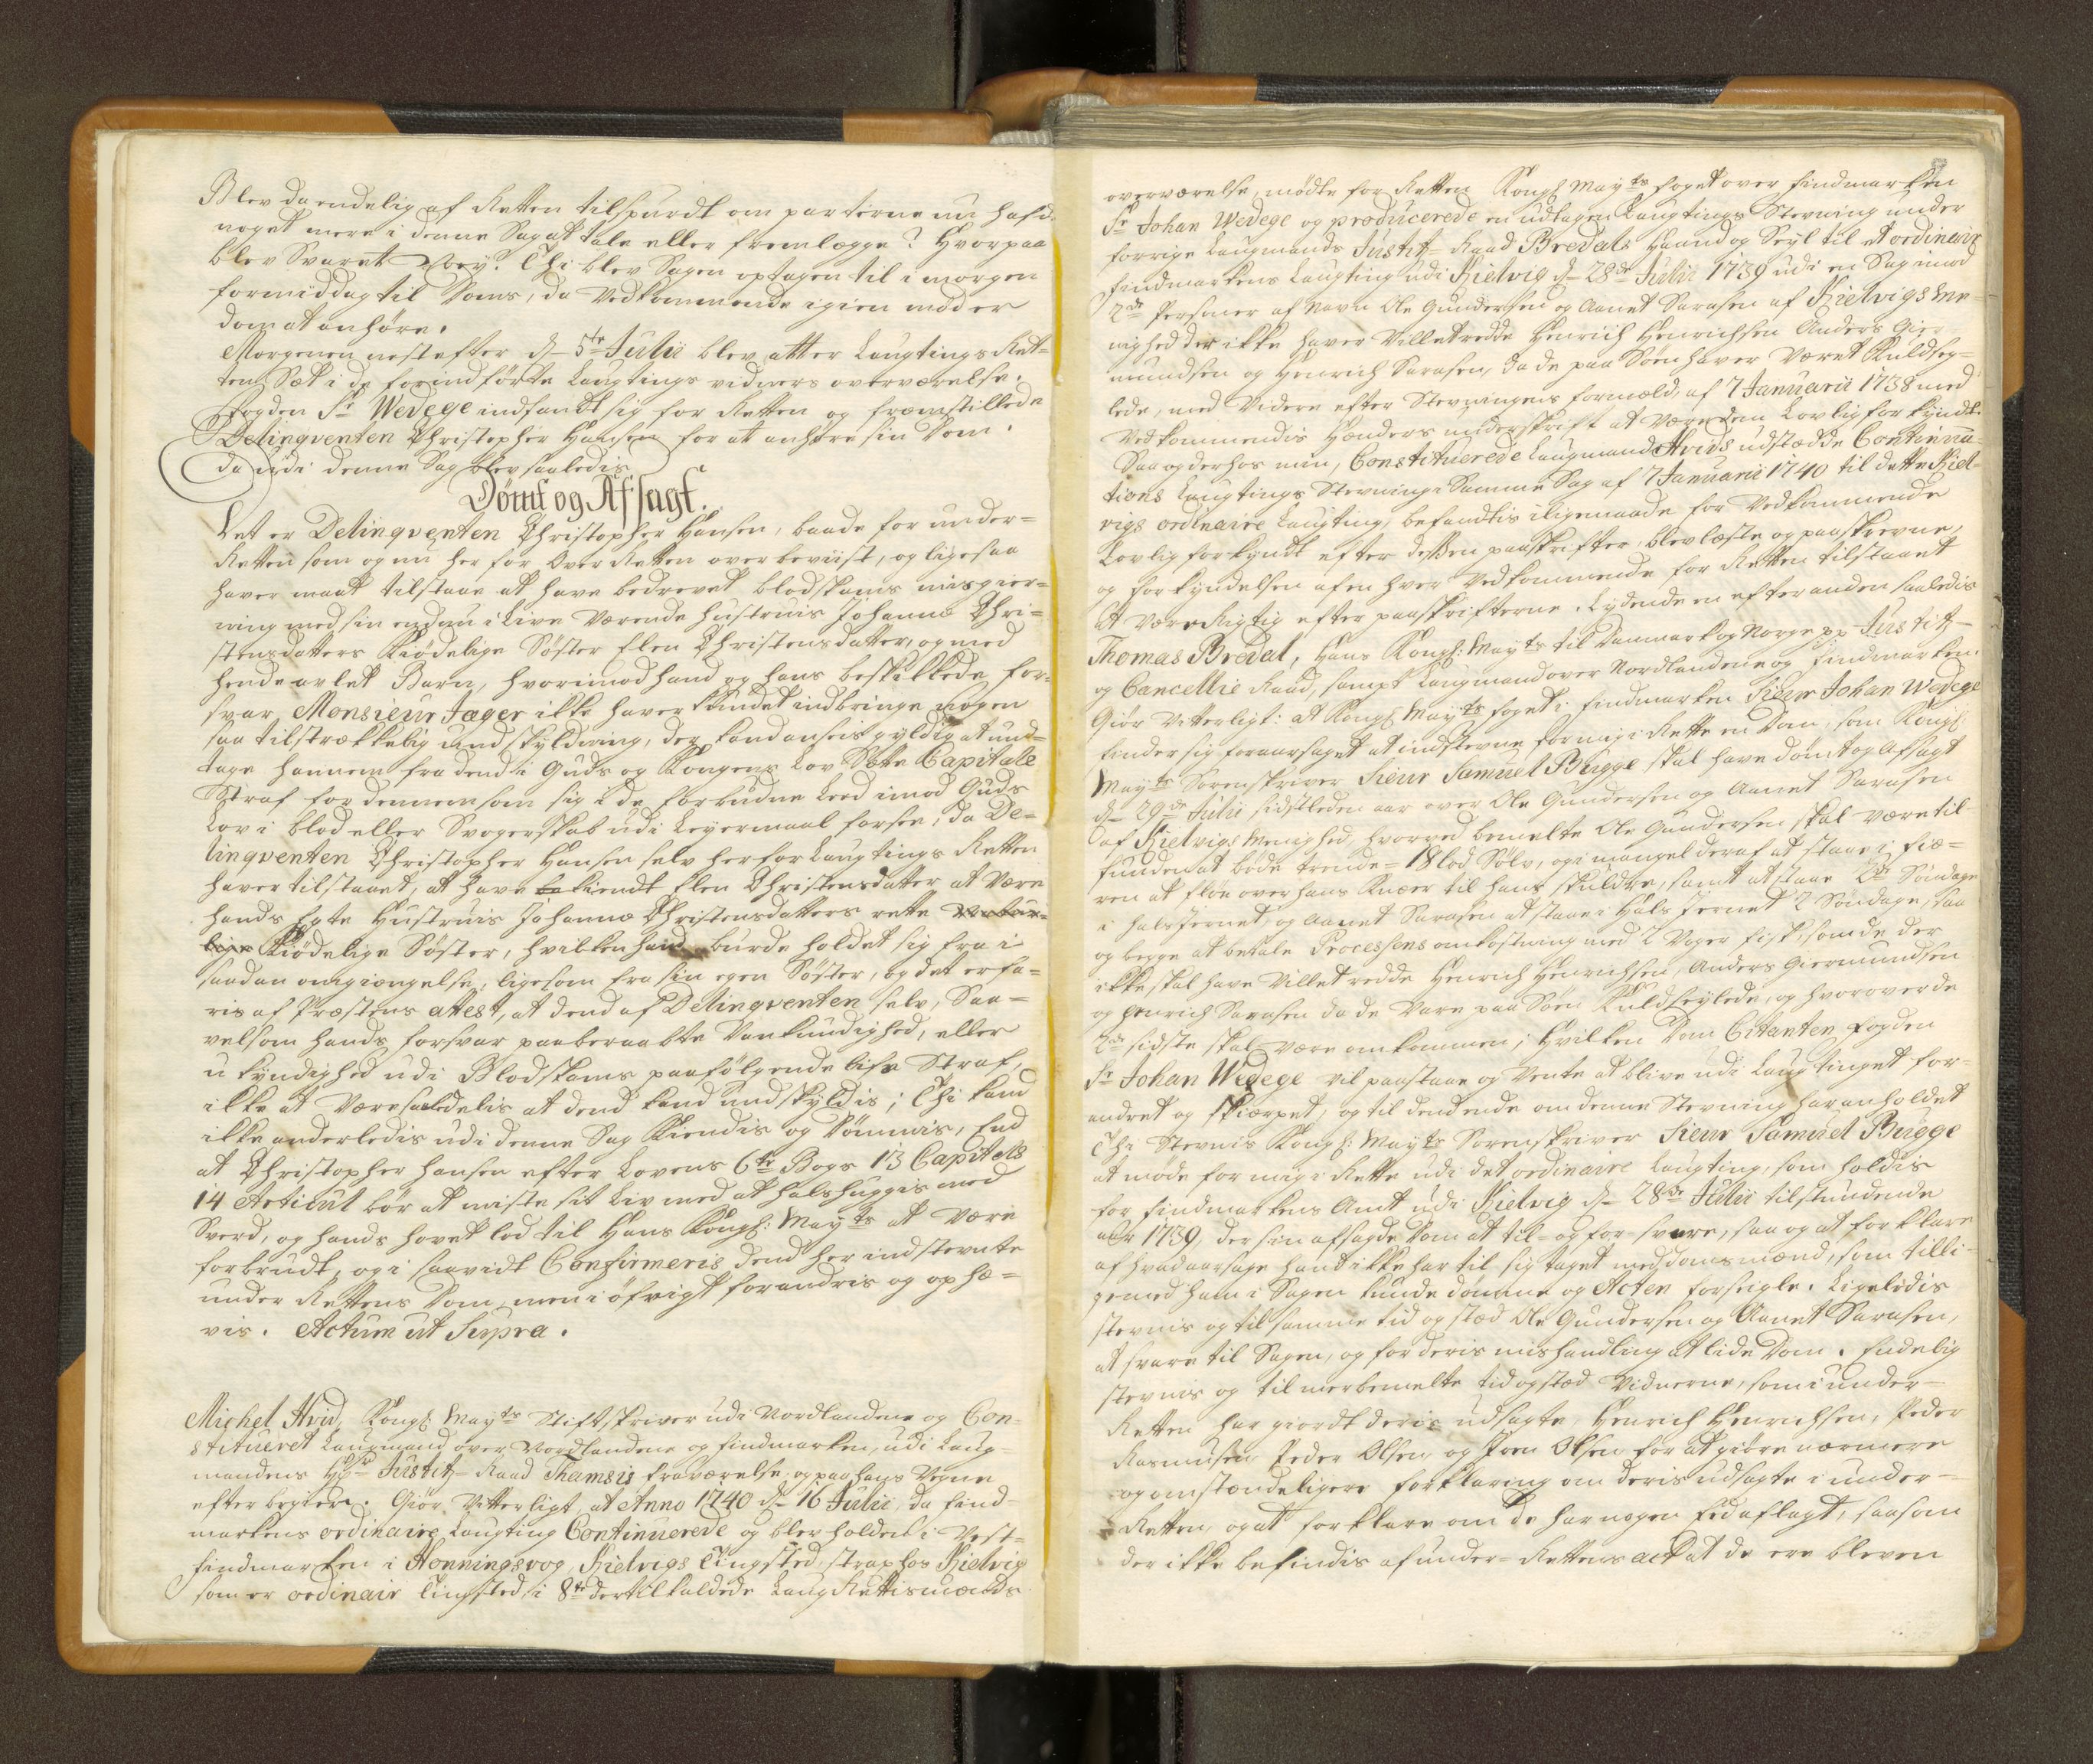 Blev da endelig af Retten tilspurdt om parterne nu hafde
noget mere i denne Sag at tale eller fremlegge? Hvorpaa
blev Svaret Ney? Thi blev Sagen optagen til i morgen
formiddag til Doms, da Vedkommende igien møder
dom at anhøre.
Morgenen nest efter d. 5te Julii blev atter Laugtings Ret=
ten Sat i de forindførte Laugtings vidners overværelse.
Fogden Sr Wedege indfandt sig for Retten og fremstillede
Delinqventen Christopher Hansen for at anhøre sin Dom.
da udi denne Sag blev saaledis
Dømt og Afsagt.
Det er Delinqventen Christopher Hansen, baade for under=
Retten som og nu her for Over Retten overbeviist, og ligesaa
haver maat tilstaae at have bedrevet blodskams misgier=
ning med sin endnu i Live Værende Hustruis Johanne Chri=
stensdatters Kiødelige Søster Elen Christensdatter, og med
hende avlet Barn, hvorimod hand og hans beskikkede for=
svar Monsieur Jæger ikke haver kundet indbringe nogen
saa tilstrækkelig undskyldning, der kand ansees gyldig at und=
tage hannem fra dend i Guds og Kongens Lov Satte Capitale
Straf for dennem som sig i de forbudne Leed imod Guds
Lov i blod eller Svogerskab udi Leyermaal forsee, da De=
linqventen Christopher Hansen selv her for Laugtings Retten
haver tilstaaet, at have bekiendt Elen Christensdatter at Være
hands Egte Hustruis Johanne Christensdatters rette
Kiødelige Søster, hvilken hand burde holdet sig fra i
saadan omgiengelse, ligesom fra sin egen Søster, og det erfa=
ris af Præstens attest, at dend af Delinqventen selv, Saa=
velsom hands forsvar paaberaabte Vankundighed, eller
ukyndighed udi Blodskams paafølgende lifs Straf,
ikke at Være saaledelis at dend kand undskyldis; Thi kand
ikke anderledis udi denne Sag Kiendis og Dømmis, End
at Christopher Hansen efter Lovens 6te Bogs 13 Capitels
14 Articul bør at miste sit Liv med at halshuggis med
Sverd, og hands hovet lod til Hans Kongl: Mayts at Være
forbrudt, og i saavidt Confirmeris dend her indstevnte
under Rettens Dom, men i øfrigt forandris og ophæ=
vis. Actum ut Supra.
Michel Hvid, Kongl: Mayts Stiftskriver udi Nordlandene og Con=
stitueret Laugmand over Nordlandene og Findmarken, udi Laug=
mandens Justitz-Raad Thamsis fraværelse, og paa hans Vegne
efter begier. Giør Vitterligt, at Anno 1740 d. 16 Julii, da Find=
markens ordinaire Laugting Continuerede og blev holden i Vest=
findmarken i Honningsvog Kielvigs Tingsted, strax hos Kielvig
som er ordinair Tingsted, i 8te dertilkaldede LaugRettismænds
overværelse, mødte for Retten Kongl: Mayts foget over Findmarken
Sr Johan Wedege og producerede en udtagen Laugtings Stevning under
forrige Laugmands Justitz-Raad Bredals Haand og Seyl til et ordinair
Findmarkens Laugting udi Kielvig d. 28de Julii 1739 udi en Sag imod
2de Personer af Navn Ole Gundersen og Aanet Sarasen af Kielvigs me=
nighed der ikke haver Villet redde Henrich Henrichsen Anders Gier=
mundsen og Henrich Sarasen, da de paa Søen haver Været Kuldsey=
lede, med Videre efter Stevningens formæld, af 7 Januarii 1738 med
Vedkommendis Hænders underskrift at være dem Lovlig forkyndt.
Saa og derhos min, Constituerede Laugmand Hvids udstædde Continua=
tions Laugtings Stevning i Samme Sag af 7 Januarii 1740 til dette Kiel=
vigs ordinaire Laugting, befandtis iligemaade for Vedkommende
Lovlig forkyndt efter dessen paaskrifter, blev læste og paaskrevne,
og forkyndelsen af en hver Vedkommende for Retten tilstaaet
at Være Rigtig efter paaskrifterne. Lydende en efter anden saaledis
Thomas Bredal, Hans Kongl: Mayts til Danmark og Norge pp Justitz-
og Cancellie Raad, sampt Laugmand over Nordlandene og Findmarken.
Giør Vitterligt: at Kongl: Mayts foget i Findmarken Sieur Johan Wedege
finder sig foraarsaget at indstevne for mig i Rette en Dom, som Kongl:
Mayts Sorenskriver Sieur Samuel Bugge skal have dømt og Afsagt
d. 29de Julii sidstleden aar over Ole Gundersen og Aanet Sarasen
af Kielvigs Menighed, hvorved bemelte Ole Gundersen skal være til=
funden at bøde trende= 18 lod Sølv, og i mangel deraf at staae i fiæ=
ren at floe over hans Knæer til hans skuldre, samt at staae 2de Søndage
i halsJernet, og Aanet Sarasen at staae i HalsJernet 2 Søndage, saa
og begge at betale Processens omkostning med 2 Voger fisk, som de der
ikke skal have Villet redde Henrich Henrichsen, Anders Giermundsen
og Henrich Sarasen da de Vare paa Søen Kuldseylede, og hvorover de
2de sidste skal være omkommen; hvilken Dom Citanten Fogden
Sr Johan Wedege vil paastaae og Vente at blive udi Laugtinget for=
andret og skiærpet, og til dend ende om denne Stevning har anholdet
Thi Stevnis Kongl: Mayts Sorenskriver Sieur Samuel Bugge
at møde for mig i Rette udi det ordinaire Laugting, som holdis
for Findmarkens Amt udi Kielvig d. 28de Julii tilstundende
aar 1739, der sin afsagde Dom at til= og for=svare, saa og at forklare
af hvad aarsage hand ikke har til sig taget meddomsmænd, som tilli=
gemed ham i Sagen kunde dømme og Acten forseigle. Ligeledis
stevnis og til samme tid og stæd Ole Gundersen og Aanet Sarasen,
at svare til Sagen, og for deris mishandling at lide Dom. Endelig
stevnis og til merbemelte tid og stæd Vidnerne, som i under=
Retten har giordt deris udsagte, Henrich Henrichsen, Peder
Rasmusen Peder Olsen og Iven Olsen for at giøre nærmere
og omstændeligere forklaring om deris udsagte i under=
Retten, og at forklare om de har nogen Eed aflagt, saasom
der ikke befindis af under=Rettens act at de ere bleven